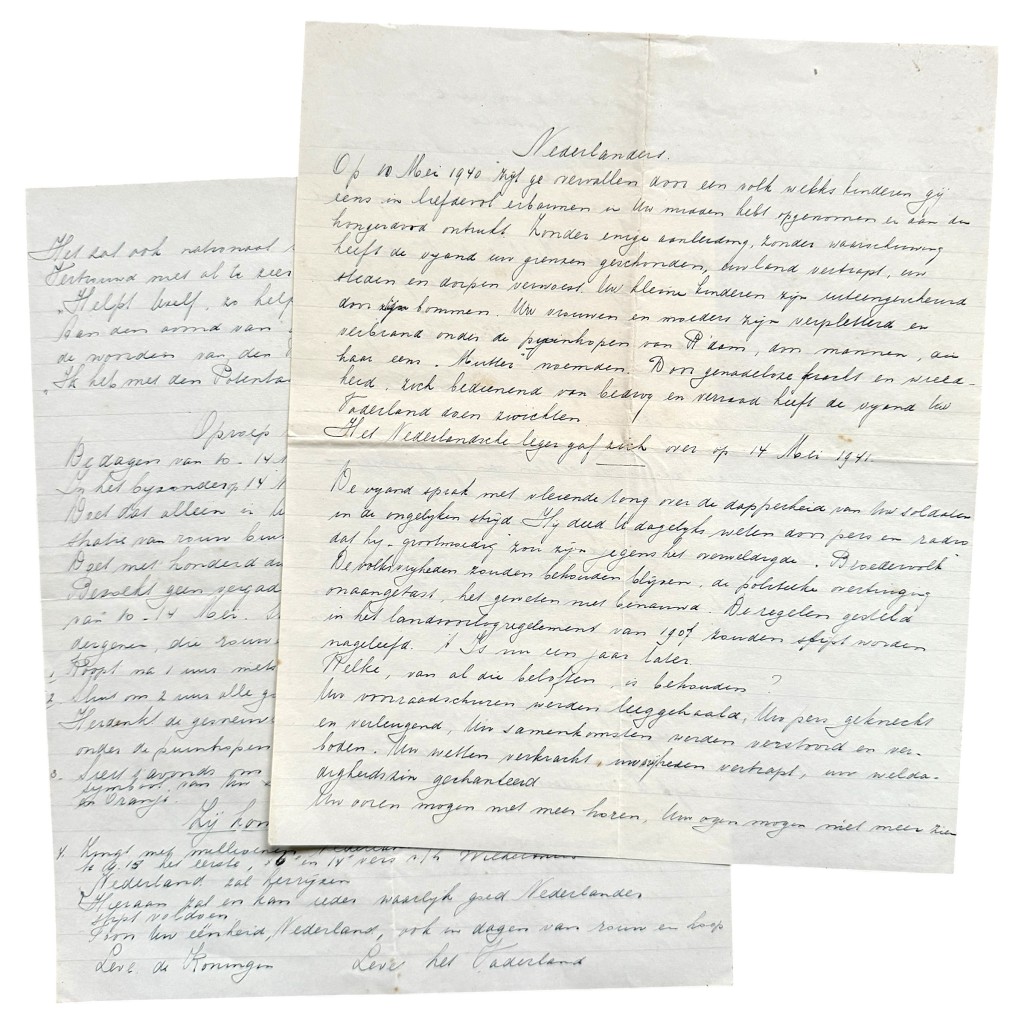 Nederlanders.
Op 10 Mei 1940 zijt ge overvallen door een volk welks kinderen gij
eens in liefdevol erbarmen in Uw midden hebt opgenomen en aan den
hongerdood ontrukt. Zonder enige aanleiding, zonder waarschuwing
heeft de vyand uw grenzen geschonden, uw land vertrapt, uw
steden en dorpen verwoest. Uw kleine kinderen zijn uiteengescheurd
door zijn bommen. Uw vrouwen en moeders zijn verpletterd en
verbrand onder de puinhopen van R'dam, door mannen, die
haar eens "Mutter" noemden. Door genadeloze kracht en wreed-
heid, zich bedienend van bedrog en verraad heeft de vyand Uw
Vaderland doen zwichten
Het Nederlandsche leger gaf zich over op 14 Mei 1941.
De vyand sprak met vleiende tong over de dapperheid van Uw soldaten
in de ongelyken stryd. Hy deed U dagelyks weten door pers en radio
dat hy "grootmoedig" zou zijn jegens het overweldigde "Broedervolk"
De volksvryheden zouden behouden blyven, de politieke overtuiging
onaangetast, het geweten niet benauwd. De regelen gesteld
in het landoorlogreglement van 1907 zouden stipt worden
nageleefd. 't Is nu een jaar later
Welke, van al die beloften, is behouden?
Uw voorraadschuren werden leeggehaald, Uw pers geknecht
en verleugend, Uw samenkomsten werden verstoord en ver-
boden. Uw wetten verkracht, uw vryheden vertrapt, uw welda-
digheidszin gechanteerd
Uw ooren mogen niet meer horen, Uw ogen mogen niet meer zien
Het zal ook nationaal
Vertrouwd met al te zeer
"Helpt Uself, zo help
Aan den avond van
de woorden van den
"Ik heb met den Potenta
Oproep
De dagen van 10-14
In het byzonder 14
Doet dat alleen in
Doet met honderd
Bezoekt geen vergad
van 10-14 Mei.
dergenen, die rouw
1. Koopt na 1 uur niets
2. Sluit om 2 uur alle
Herdenkt de
onder de puinhopen
3. Siert s'avonds om
symbool van Uw
en Oranje.
Zij kom
4. Zingt met millioenen
te 9.15 het eerste, 6e en 14e vers v/h Wilhelmus
Nederland zal herryzen
Hieraan zal en kan ieder waarlyk goed Nederlander
stipt voldoen
Toon Uw eenheid, Nederland, ook in dagen van rouw en hoop
Leve de Koningin Leve het Vaderland